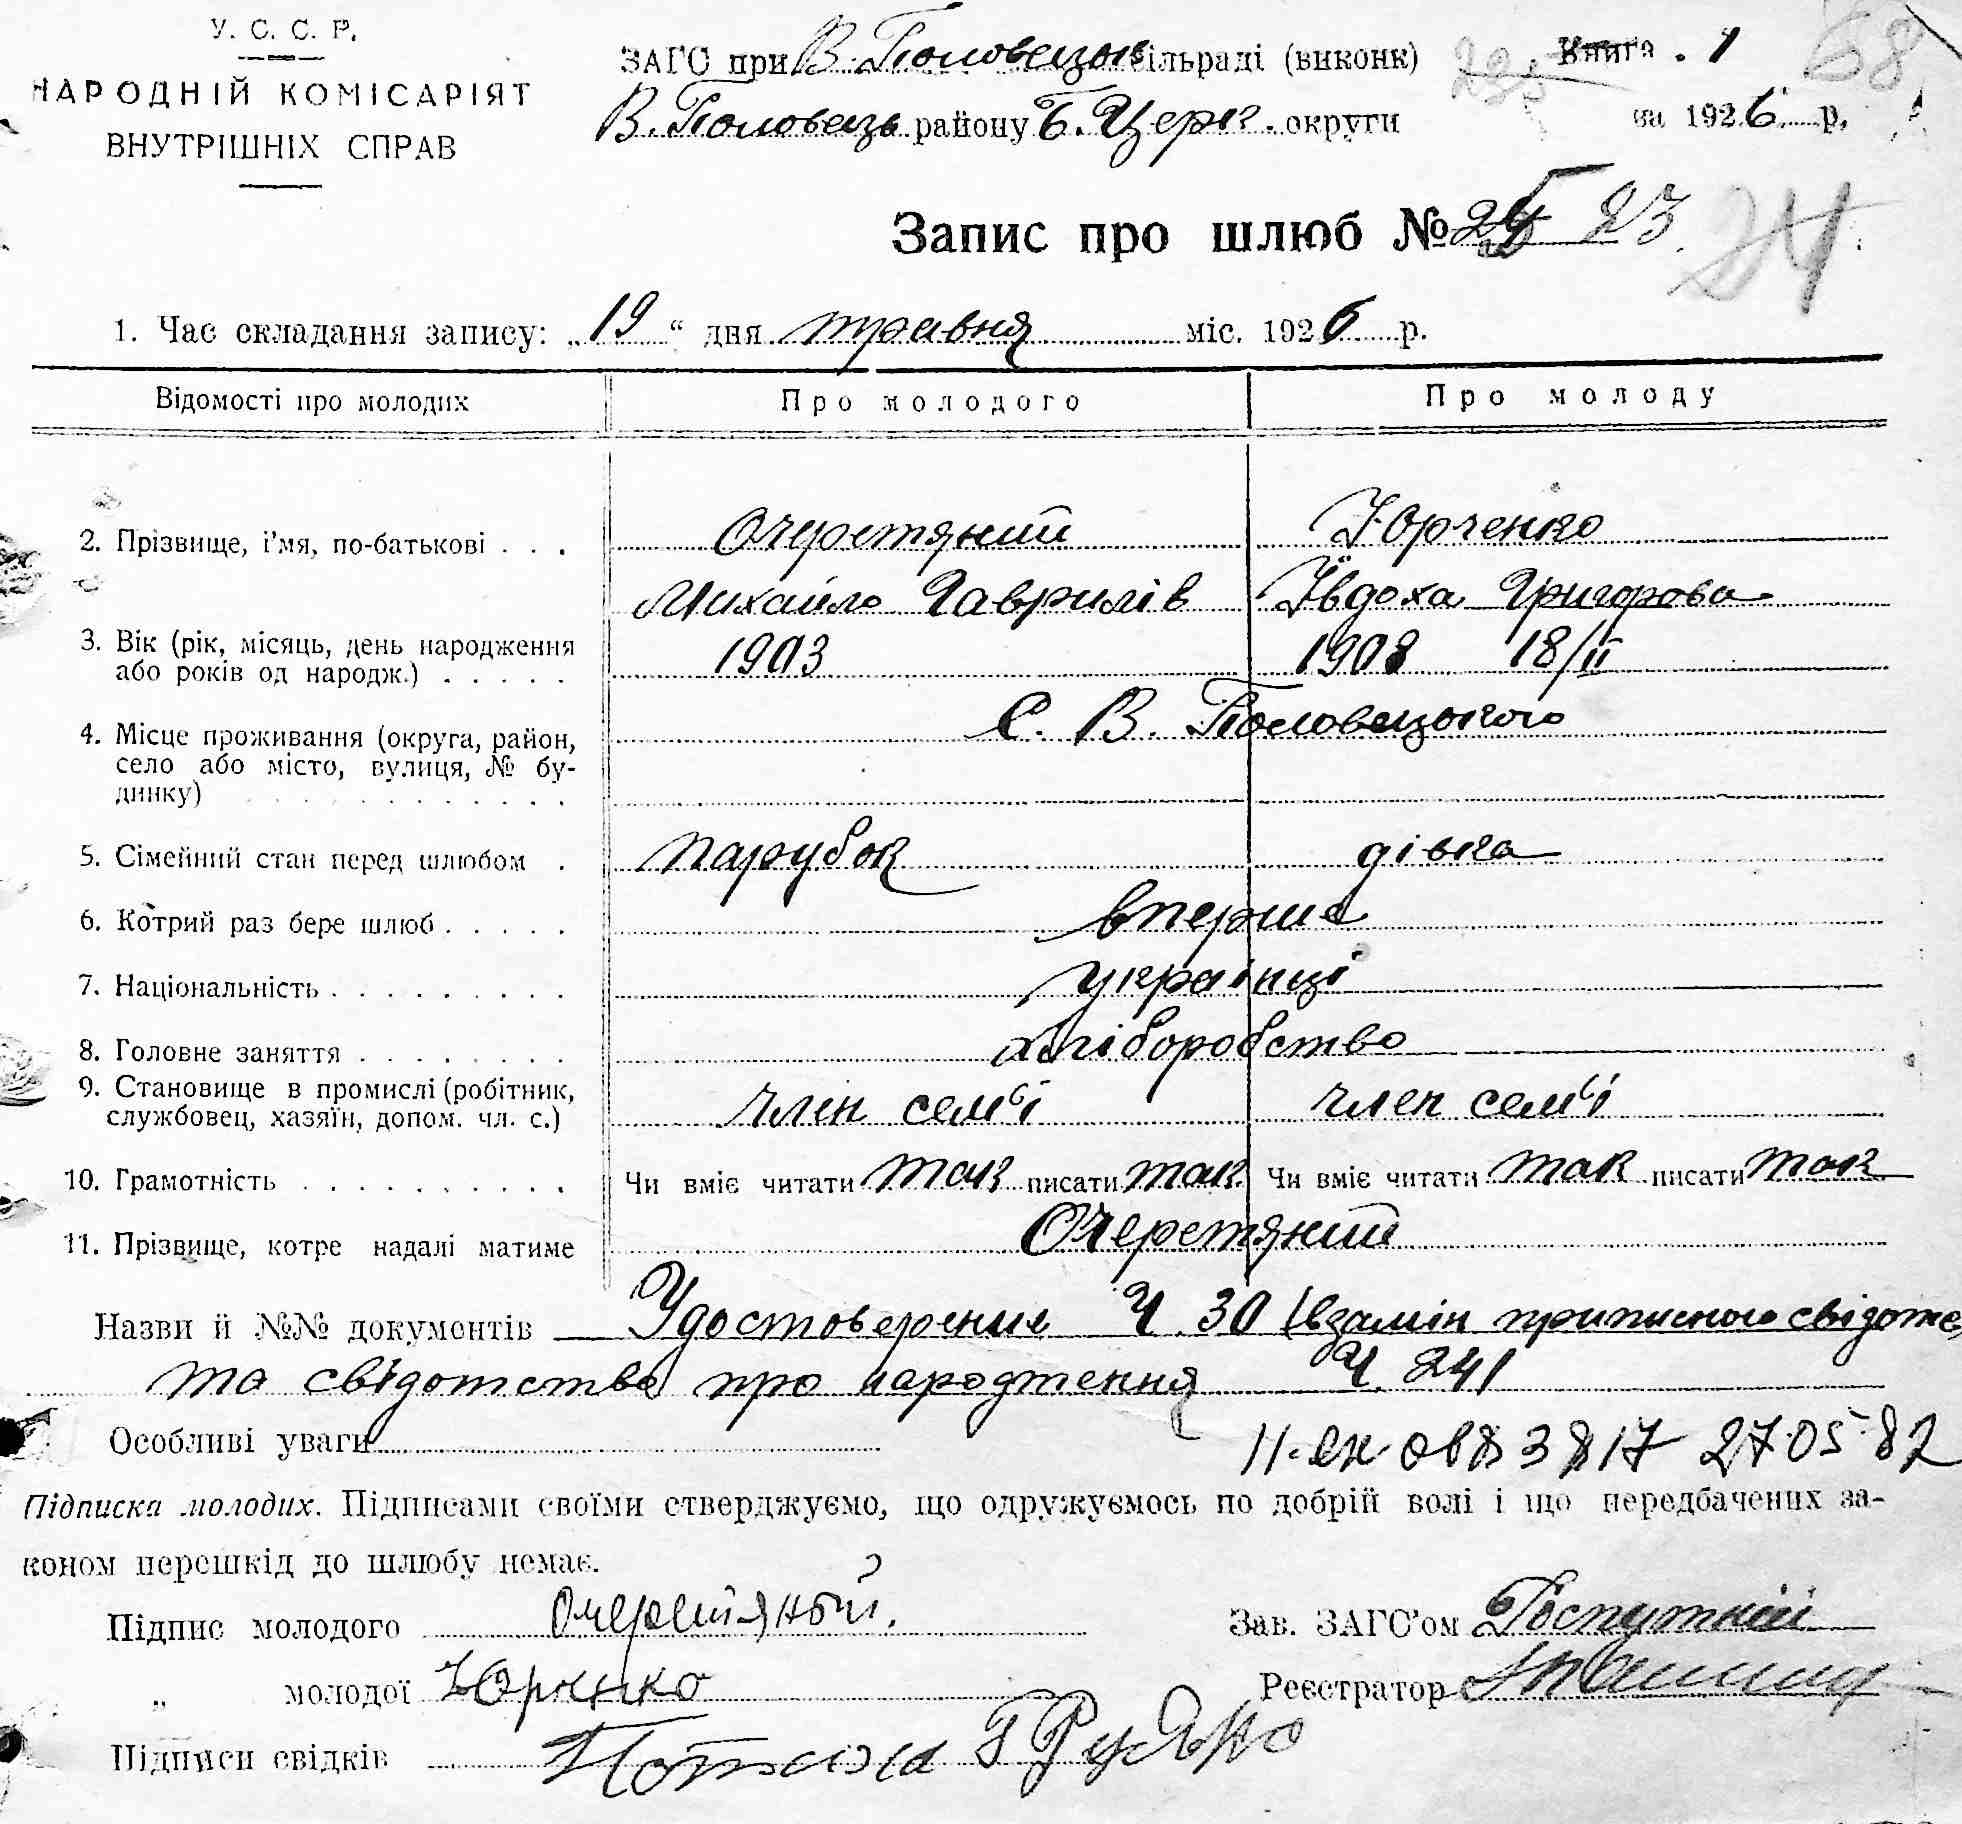 У. С. С. Р.
НАРОДНІЙ КОМІСАРІЯТ
ВНУТРІШНІХ СПРАВ
ЗАГС при В. Половецьк. сільраді (виконк)
В. Половець району Б. Церк. округи
Книга . 1
за 1926 р.
68
Запис про шлюб № 23
24
1. Час складання запису: „19“ дня травня міс. 1926 р.
Відомості про молодих Про молодого Про молоду
2. Прізвище, і'мя, по-батькові . . . Очеретяний Юрченко
Михайло Гаврилів Ївдоха Григорова
3. Вік (рік, місяць, день народження
або років од народж.) . . . . . 1903 1908 18/II
4. Місце проживання (округа, район,
село або місто, вулиця, № бу-
динку) . . . . . . . . . . . .
С. В. Половецького
5. Сімейний стан перед шлюбом . парубок дівка
6. Котрий раз бере шлюб . . . . . вперше
7. Національність . . . . . . . . . українці
8. Головне заняття . . . . . . . . хліборобство
9. Становище в промислі (робітник,
службовец, хазяїн, допом. чл. с.) член сем'ї член сем'ї
10. Грамотність . . . . . . . . . . Чи вміє читати так писати так Чи вміє читати так писати так
11. Прізвище, котре надалі матиме Очеретяний
Назви й №№ документів Удостоверение Ч. 30 (взамін приписного свідоте
та свідотство про народження Ч. 241
Особливі уваги
27.05.82
Підписка молодих. Підписами своїми стверджуємо, що одружуємось по добрій волі і що передбачених за-
коном перешкід до шлюбу немає.
Підпис молодого Очеретяный.
„ молодої Юрченко
Зав. ЗАГС'ом Распутній
Реєстратор
Підписи свідків